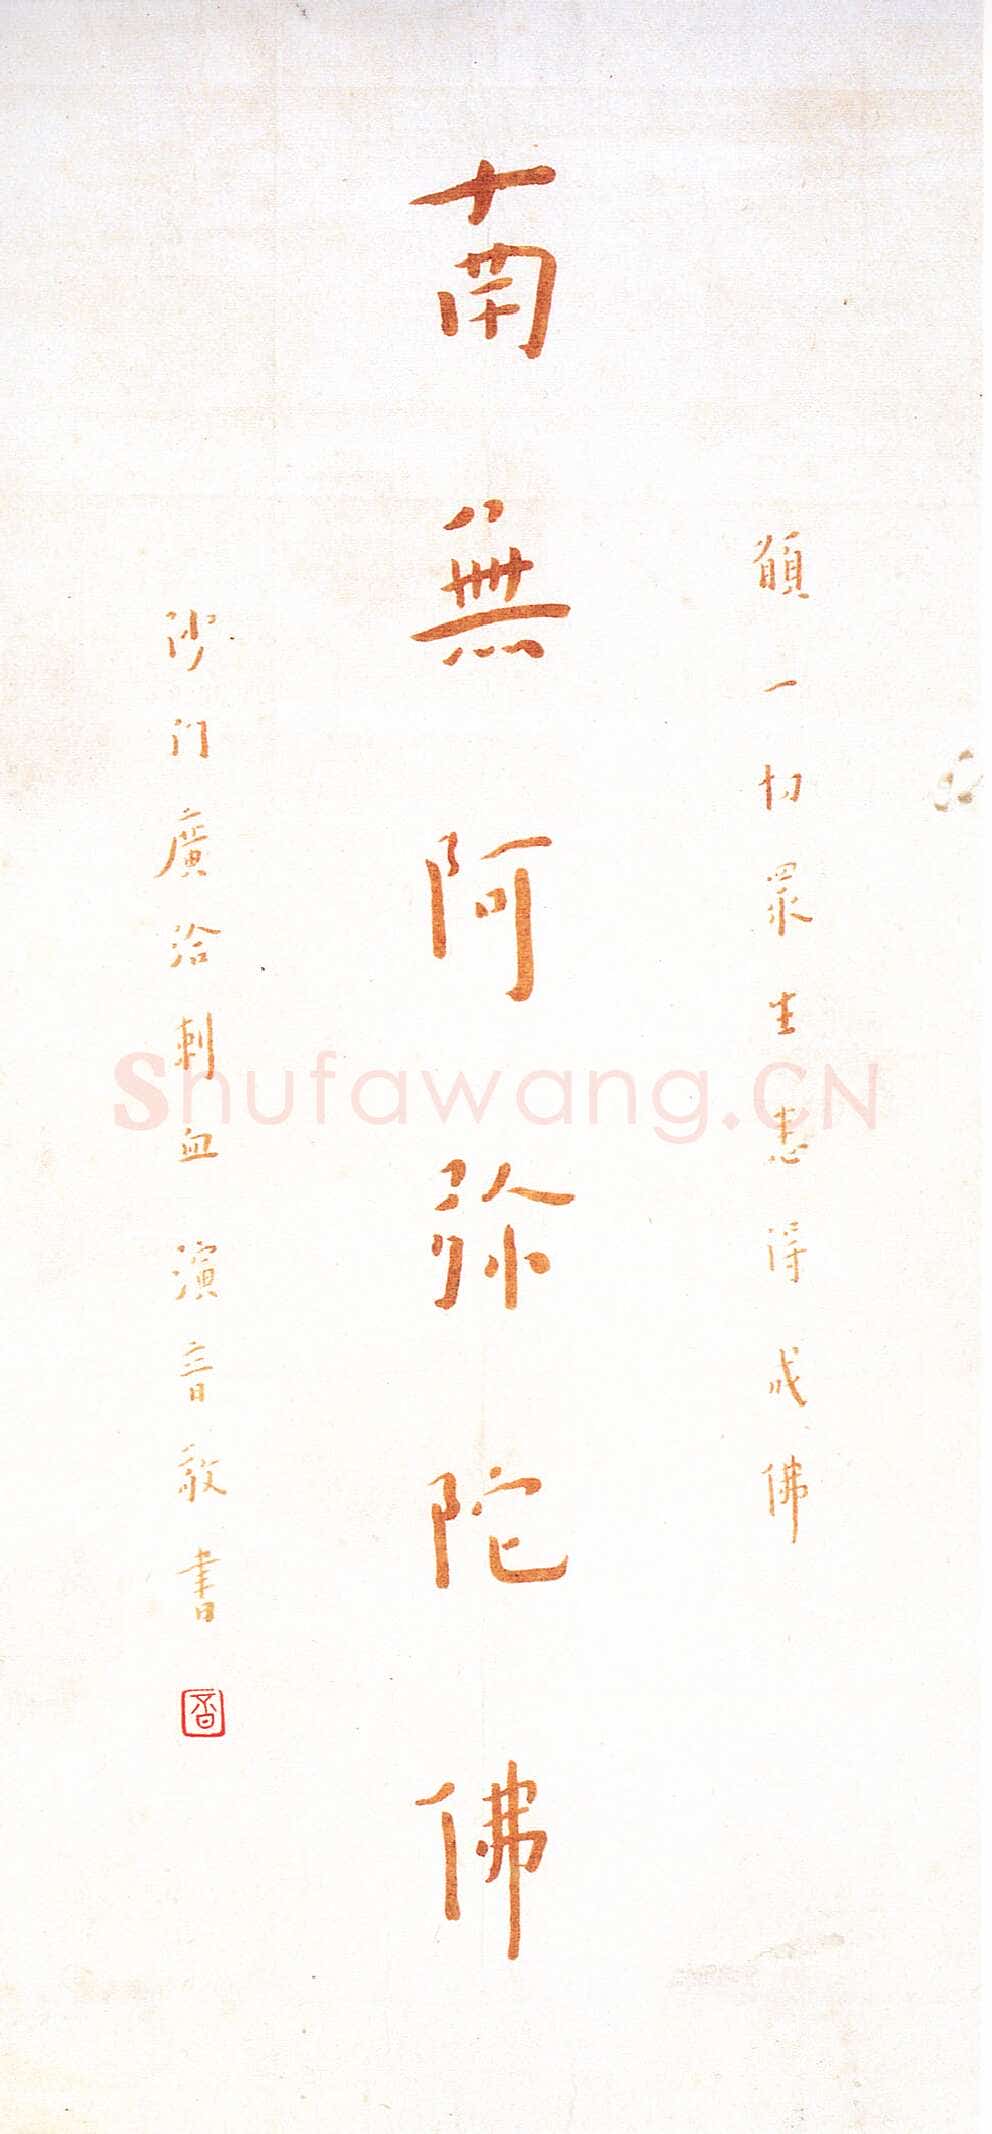 願一切眾生悉得成佛
南無阿弥陀佛
沙门廣洽刺血演音敬書
Shufawang.CN